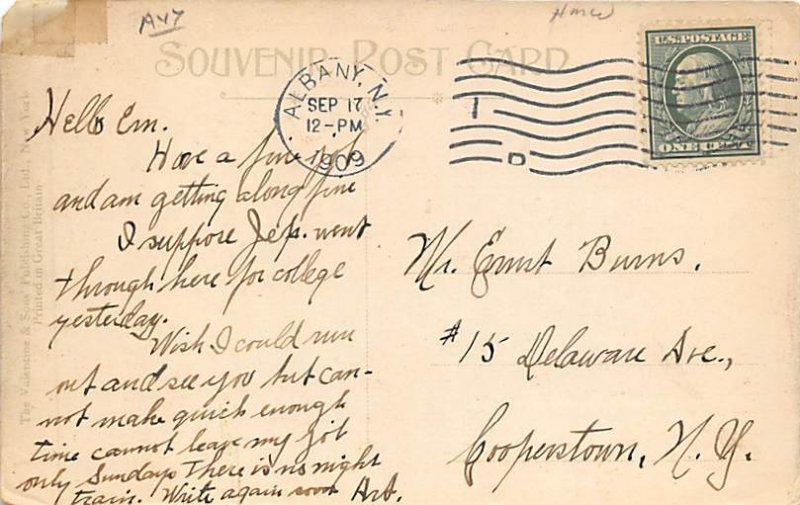 Av7
SOUVENIR POST CARD
U.S. POSTAGE
ONE CENT
ALBANY, N.Y.
SEP 17
12-PM
1909
The Valentine & Sons Publishing Co., Ltd., New York
Printed in Great Britain
Hello Ern.
Have a fine job
and am getting along fine
I suppose Jep. went
through here for college
yesterday.
Wish I could run
out and see you but can-
not make quick enough
time cannot leave my job
only Sundays There is no night
train. Write again soon Art.
Mr. Ernest Burns.
#15 Delaware Ave.,
Cooperstown, N.Y.